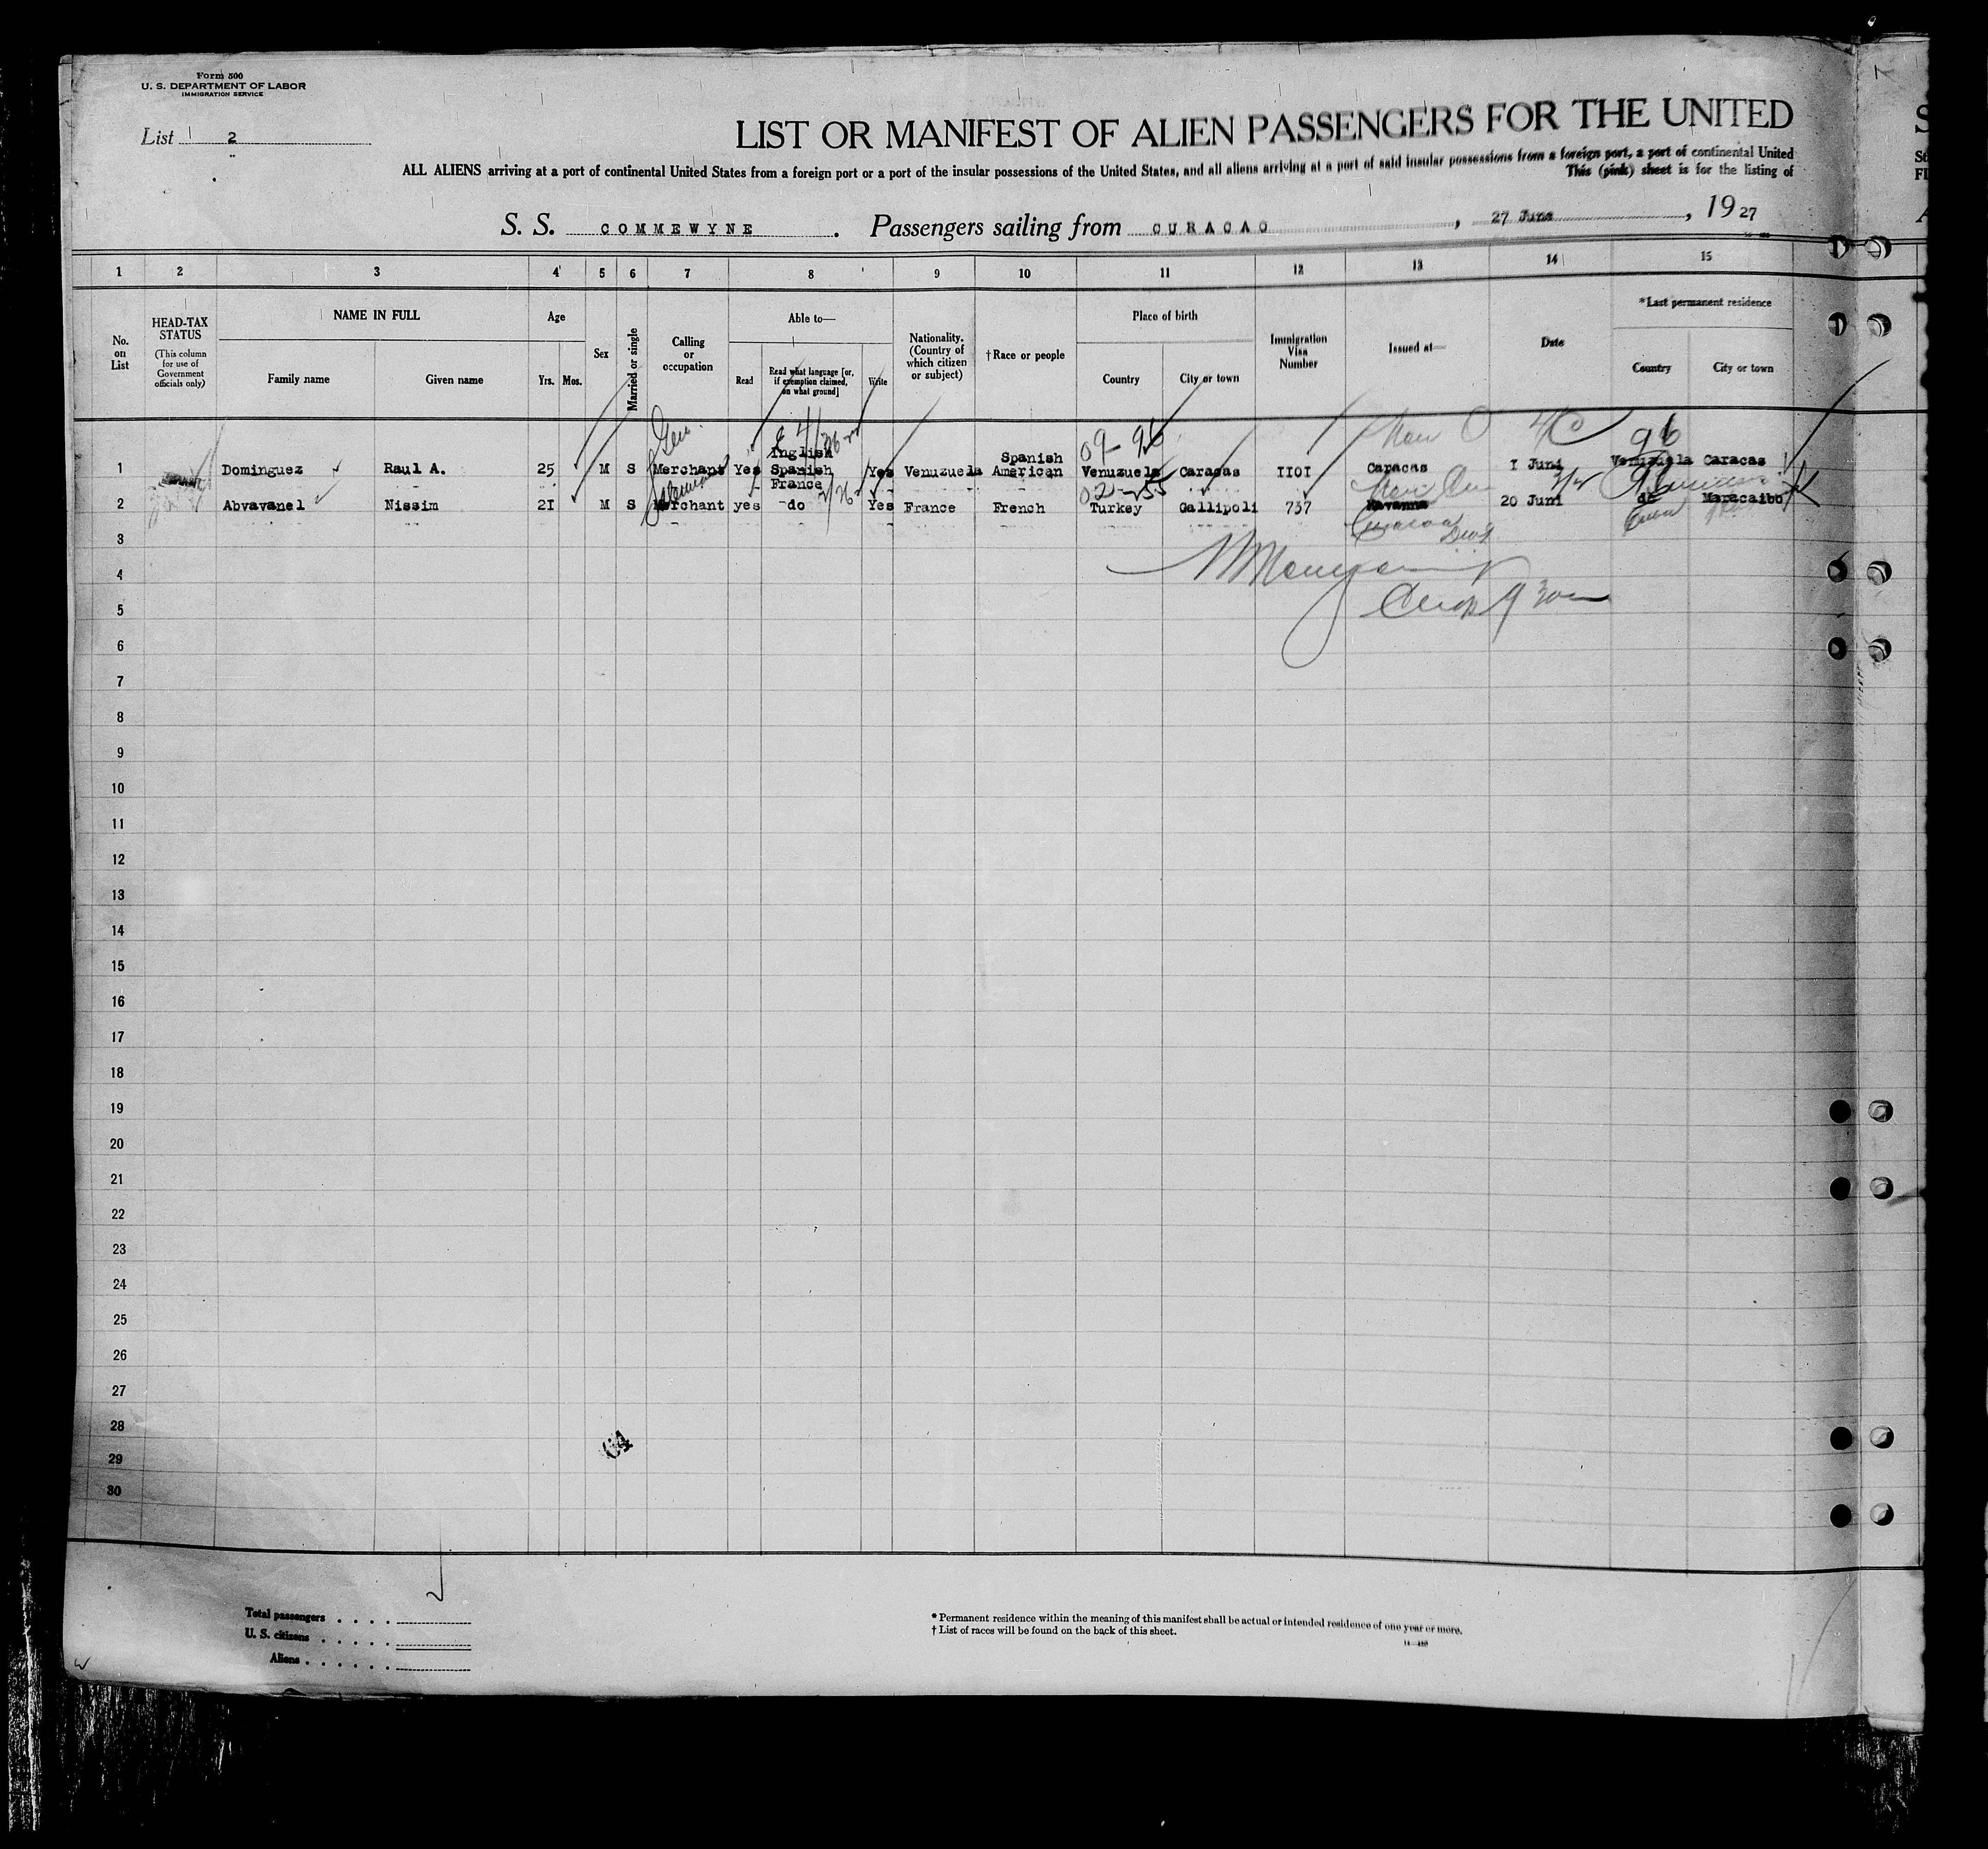 Form 500
U. S. DEPARTMENT OF LABOR
IMMIGRATION SERVICE
List 2
LIST OR MANIFEST OF ALIEN PASSENGERS FOR THE UNITED
ALL ALIENS arriving at a port of continental United States from a foreign port or a port of the insular possessions of the United States, and all aliens arriving at a port of said insular possessions from a foreign port, a port of continental United
This (pink) sheet is for the listing of
S. S. COMMEWYNE. Passengers sailing from CURACAO, 27 June, 1927
1 2 3 4 5 6 7 8 9 10 11 12 13 14 15
No. on List
HEAD-TAX STATUS
(This column for use of Government officials only)
NAME IN FULL
Family name Given name
Age
Yrs. Mos.
Sex
Married or single
Calling or occupation
Able to—
Read
Read what language [or, if exemption claimed, on what ground]
Write
Nationality. (Country of which citizen or subject)
†Race or people
Place of birth
Country City or town
Immigration Visa Number
Issued at—
Date
*Last permanent residence
Country City or town
09-96 96
Inglish Spanish
1 Dominguez Raul A. 25 M S Merchant Yes Spanish Yes Venuzuela American Venuzuela Caracas II0I Caracas I Juni Venizuela Caracas
France
2 Abvavanel Nissim 2I M S Merchant yes do Yes France French Turkey Gallipoli 737 Havanna 20 Juni do Maracaibo
3
4
5
6
7
8
9
10
11
12
13
14
15
16
17
18
19
20
21
22
23
24
25
26
27
28
64
29
30
Total passengers
U. S. citizens
Aliens
* Permanent residence within the meaning of this manifest shall be actual or intended residence of one year or more.
† List of races will be found on the back of this sheet.